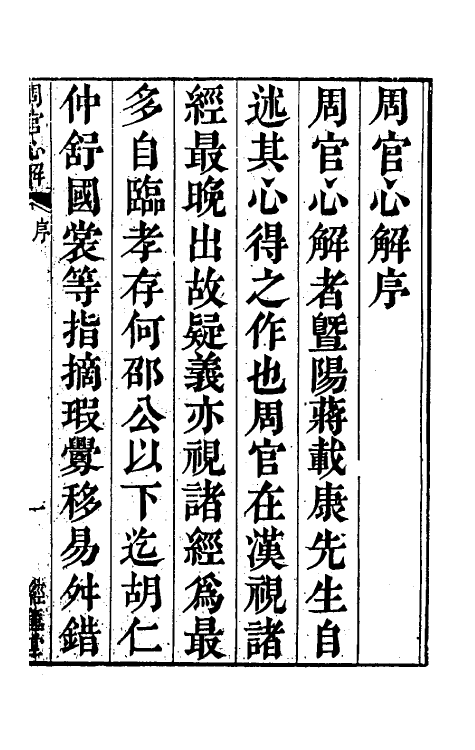 周官心解序
周官心解者曁陽蔣載康先生自
述其心得之作也周官在漢視諸
經最晚出故疑義亦視諸經爲最
多自臨孝存何邵公以下迄胡仁
仲舒國裳等指摘瑕釁移易舛錯
周官心解 序 一 經